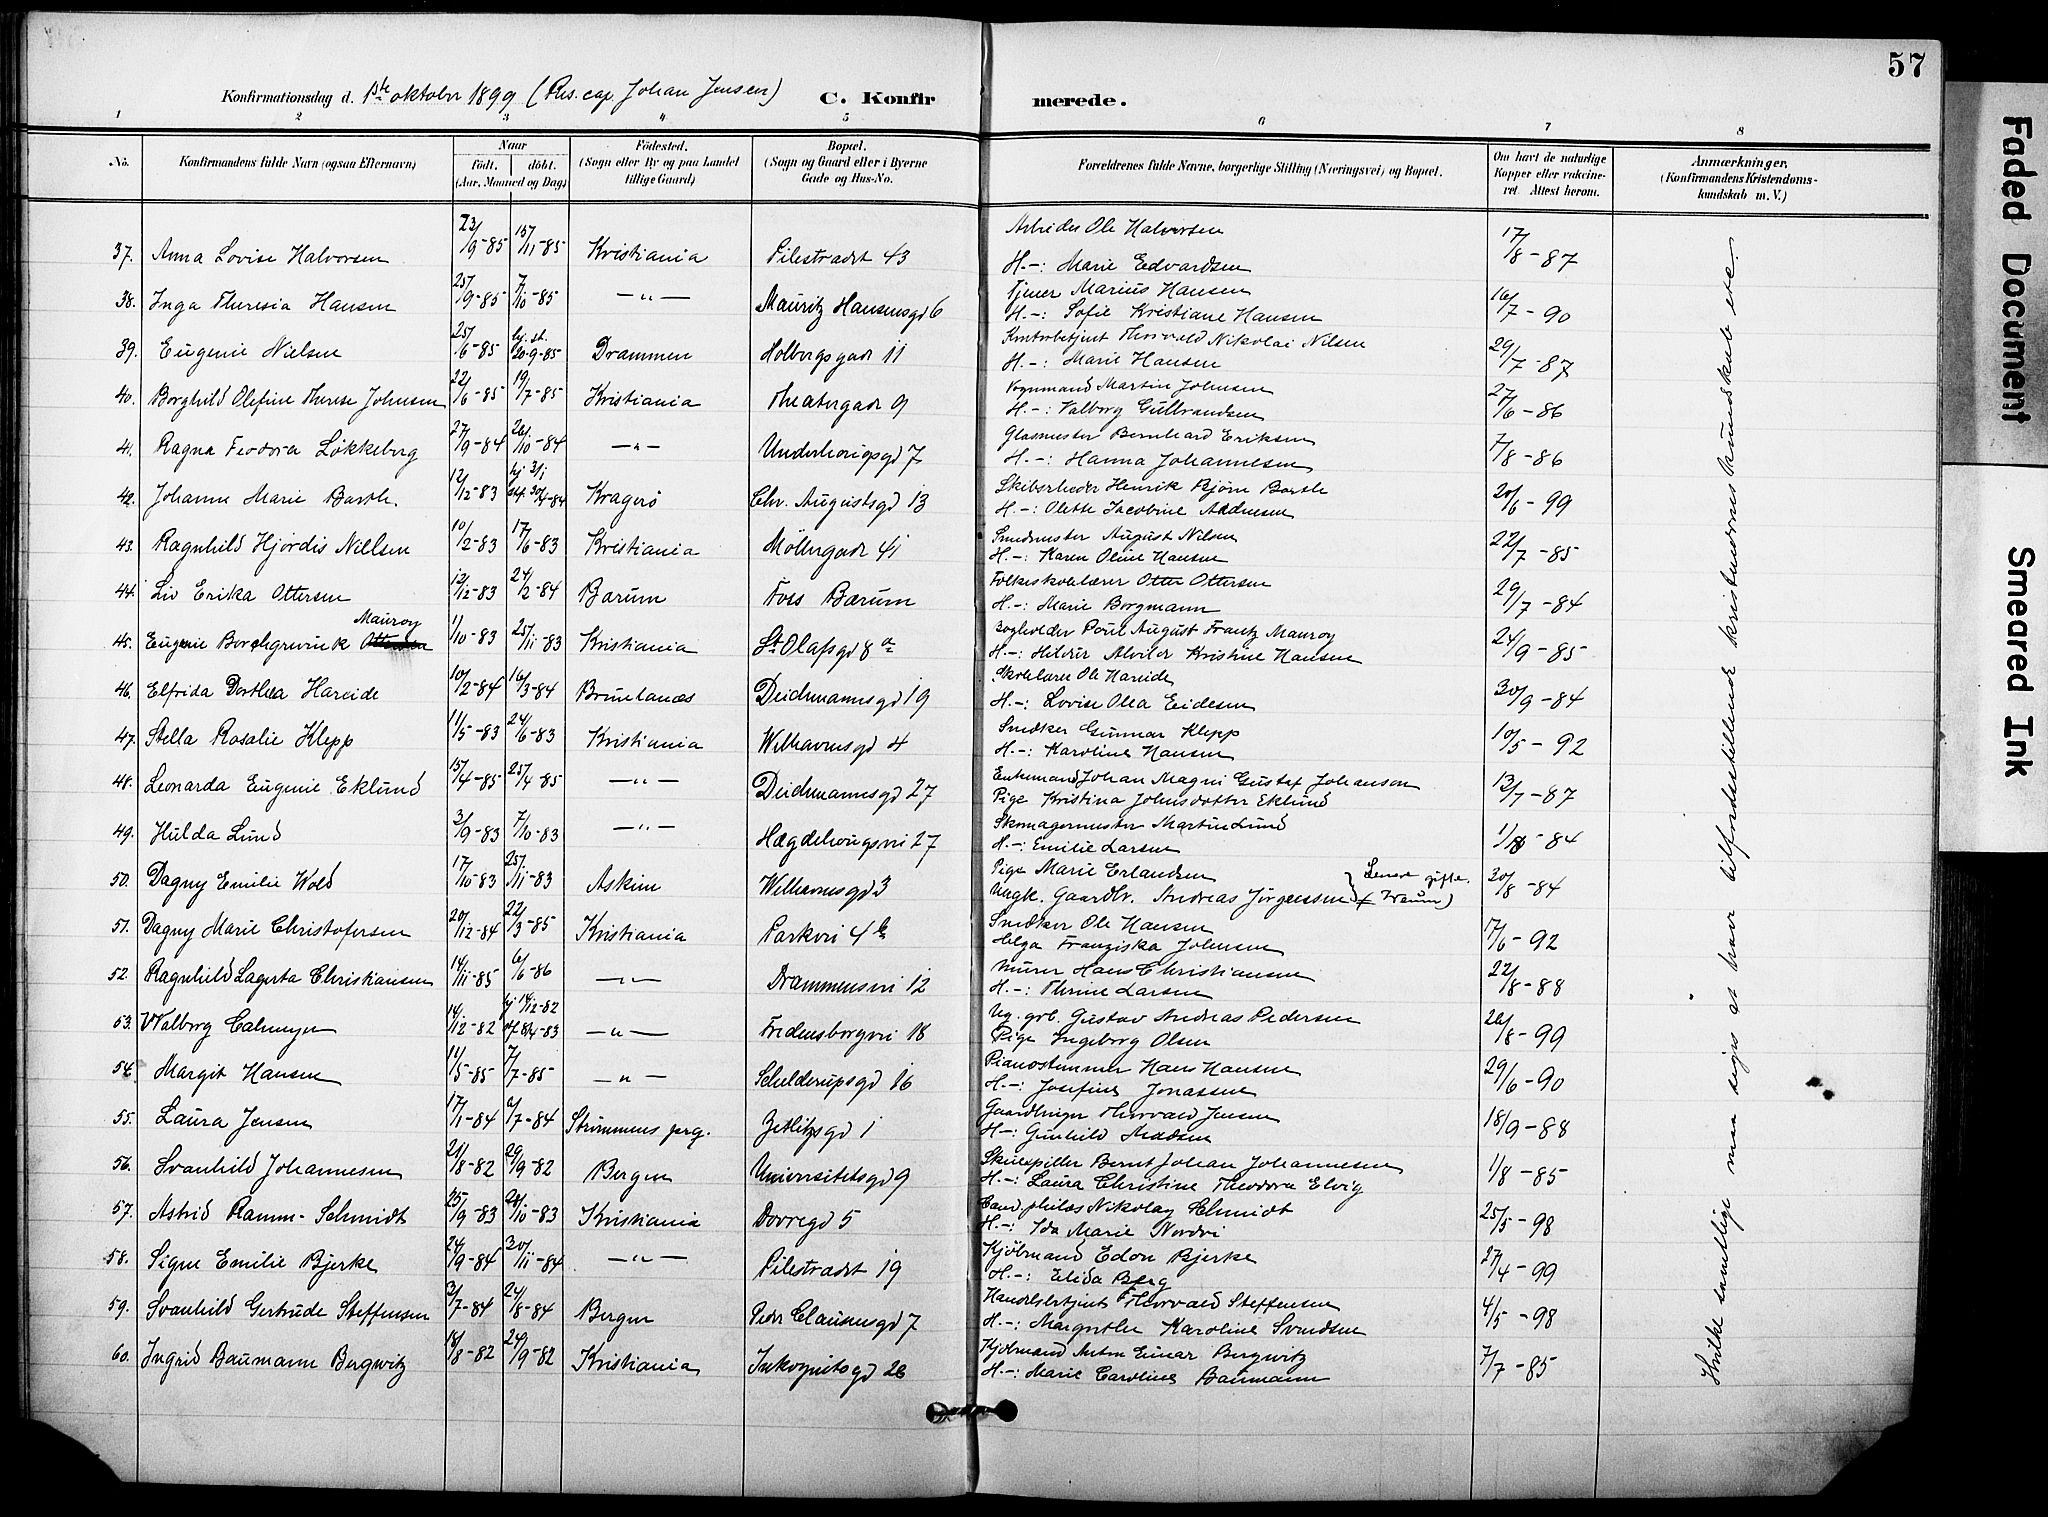 57
Konfirmationsdag d. 1ste oktober 1899 (Res. cap. Johan Jensen) C. Konfirmerede.
1 2 3 4 5 6 7 8
No. Konfirmandens fulde Navn (ogsaa Efternavn) Naar födt. döbt. (Aar, Maaned og Dag) Födested. (Sogn eller By og paa Landet tillige Gaard) Bopæl. (Sogn og Gaard eller i Byerne Gade og Hus-No. Forældrenes fulde Navne, borgerlige Stilling (Næringsvei) og Bopæl. Om havt de naturlige Kopper eller vakcineret. Attest herom. Anmærkninger. (Konfirmandens Kristendomskundskab m. V.)
37. Anna Lovise Halvorsen 23/9-85 15/11-85 Kristiania Pilestrædet 43 Arbeider Ole Halvorsen 17/8-87
H.-: Marie Edvardsen
38. Inga Theresia Hansen 25/9-85 7/10-85 -"- Mauritz Hansensgd 6 Tjener Marius Hansen 16/7-90
H.-: Sofie Kristiane Hansen
39. Eugenie Nielsen 25/6-85 hj. st. 20-9-85 Drammen Holbergsgade 11 Kontorbetjent Thorvald Nikolai Nilsen 29/7-87
H.-: Marie Hansen
40. Borghild Olefine Therese Johnsen 22/6-85 19/7-85 Kristiania Theatergade 9 Vognmand Martin Johnsen 27/6-86
H.-: Valborg Gulbrandsen
41. Ragna Teodora Løkkeberg 27/9-84 26/10-84 -"- Underhougsgd 7 Glasmester Bernhard Eriksen 7/8-86
H.-: Hanna Johannesen
42. Johanne Marie Barth 12/12-83 hj 3/1 st. 30/4-84 Kragerö Chr. Augustsgd 13 Skibsrheder Henrik Björn Barth 20/6-99
H.-: Olette Jacobine Andresen
43. Ragnhild Hjördis Nielsen 10/2-83 17/6-83 Kristiania Möllergade 41 Smedmester August Nilsen 22/7-85
H.-: Karen Oline Hansen
44. Liv Erika Ottersen 12/12-83 24/2-84 Bærum Foss Bærum Folkeskolelærer Otto Ottersen 29/7-84
H.-: Marie Borgmann
45. Eugenie Borchgrevink Mauroy 1/10-83 25/11-83 Kristiania St Olafsgd 8a Bogholder Poul August Frantz Mauroy 24/9-85
H.-: Hildur Alvilde Kristine Hansen
46. Elfrida Dorthea Hareide 10/2-84 16/3-84 Brunlanæs Deichmannsgd 19 Skolelærer Ole Hareide 30/9-84
H.-: Lovise Olea Eidesen
47. Stella Rosalie Klepp 11/5-83 24/6-83 Kristiania Welhavensgd 4 Snedker Gunnar Klepp 10/5-92
H.-: Karoline Hansen
48. Leonarda Eugenie Eklund 15/4-85 25/4-85 -"- Deichmannsgd 27 Enkemand Johan Magni Gustaf Johanson 12/7-87
Pige Kristina Johnsdotter Eklund
49. Hulda Lund 3/9-83 7/10-83 -"- Hægdehougsvei 27 Skomagermester Martin Lund 1/10-84
H.-: Emilie Larsen
50. Dagny Emilie Wold 17/10-83 25/11-83 Askim Welhavensgd 3 Pige Marie Erlandsen } Senere gifte. 30/8-84
Ungk. Gaardbr. Andreas Jörgenssen
51. Dagny Marie Christofersen 20/12-84 22/3-85 Kristiania Parkvei 4b Snedker Ole Hansen 17/6-92
Helga Franziska Johnsen
52. Ragnhild Lagerta Christiansen 14/11-85 6/6-86 -"- Drammensvei 12 Murer Hans Christiansen 22/8-88
H.-: Thrine Larsen
53. Walborg Calmeyer 14/12-82 hj 14/12-82 8/4-83 -"- Fredensborgvei 18 Ug. grb. Gustav Andreas Pedersen 26/8-99
Pige Ingeborg Olsen
54. Margit Hansen 11/5-85 7/7-85 -"- Schelderupsgd 16 Pianostemmer Hans Hansen 29/6-90
H.-: Josefine Jonassen
55. Laura Jensen 17/1-84 6/7-84 Strømmens prg. Zetlitzsgd 1 Gaardbruger Thorvald Jensen 18/9-88
H.-: Gunhild Madsen
56. Svanhild Johannesen 21/8-82 29/9-82 Bergen Universitetsgd 9 Skuespiller Bernt Johan Johannesen 1/8-85
H.-: Laura Christine Theodora Elvig
57. Astrid Ramm-Schmidt 25/9-83 28/10-83 Kristiania Dovregd 5 Cand. philos Nikolay Schmidt 25/5-98
H.-: Ida Marie Nordvi
58. Signe Emilie Bjerke 24/9-84 30/11-84 -"- Pilestrædet 19 Kjöbmand Edon Bjerke 27/4-99
H.-: Elida Berg
59. Svanhild Gertrude Steffensen 3/7-84 24/8-84 Bergen Peder Clausensgd 7 Handelsbetjent Thorvald Steffensen 4/5-98
H.-: Margrethe Karoline Svendsen
60. Ingrid Baumann Bergwitz 14/8-82 24/9-82 Kristiania Inkognitogd 26 Kjöbmand Anton Einar Bergwitz 7/7-85
H.-: Marie Caroline Baumann
Hvilke samtlige maa siges at have tilfredsstillende kristendomskundskab etc.
Faded Document
Smeared Ink